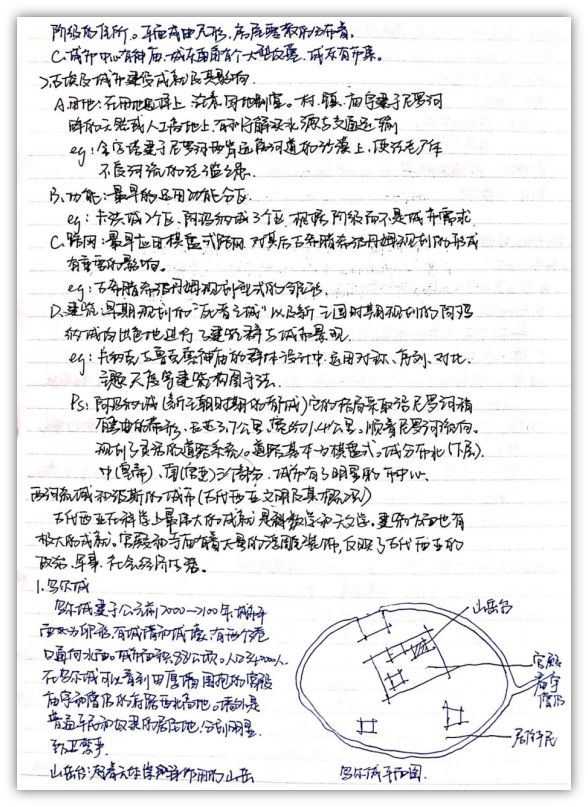 阶级的住所。平面成由尺形,房屋密教的分布着。
C.城市中心有神庙,城东南角有个大型皮墓,城东有市集。
2.古埃及城市建设成就及其影响
A.用地:在用地选择上,注意因地制宜。村、镇、庙宇建于尼罗河
畔的天然或人工高地上,有利于解决水源与交通运输
eg:金字塔建于尼罗河西岸远离河道的沙漠上,使法老尸体
不受河流的泛滥之患。
B.功能:最早的运用功能分区
eg:卡洪城2个区,阿玛纳城3个区,根据阶级而不是城市需求
C.路网:最早应用棋盘式路网,对其后古希腊希波丹姆规划的形成
有重要的影响。
eg:古希腊希波丹姆规划型式的雏形。
D.建筑:早期规划的“死者之城”以及新王国时期规划的阿玛
纳城均出色地进行了建筑群与城市景观
eg:卡纳克与鲁克索神庙的群体设计中运用对称、序列、对比、
主题、尺度等建筑构图手法
Ps:阿玛纳城(新王朝时期的都城)它的格局采取沿尼罗河稍
有弯曲的带形,长至3.7公里,宽约1.4公里,顺着尼罗河纵向。
规划了灵活的道路系统。道路基本为棋盘式。城分布北(下层)、
中(帝都)、南(官吏)三个部分。城市有了明显的市中心。
两河流域和波斯的城市(古代西亚文明及其概况)
古代西亚在科学上最伟大的成就是科数学和天文学。建筑方面也有
极大的成就。宫殿和寺庙有着大量的浮雕装饰,反映了古代西亚的
政治、军事、社会经济生活。
1.乌尔城
乌尔城建于公元前2000—2100年,城市平
面为卵形,有城墙和城壕,有两个港
口通向水面。城市面积88公顷。人口34000人。
在乌尔城可以看到由厚墙围抱的宫殿
庙宇和僧侣的府邸西北高地。墙外是
普通平民和奴隶的居住地,分划明显,
卫变亨
山岳台:起着天体崇拜作用的山岳
山岳台
宫殿
庙宇
僧侣
居住平民
乌尔城平面图